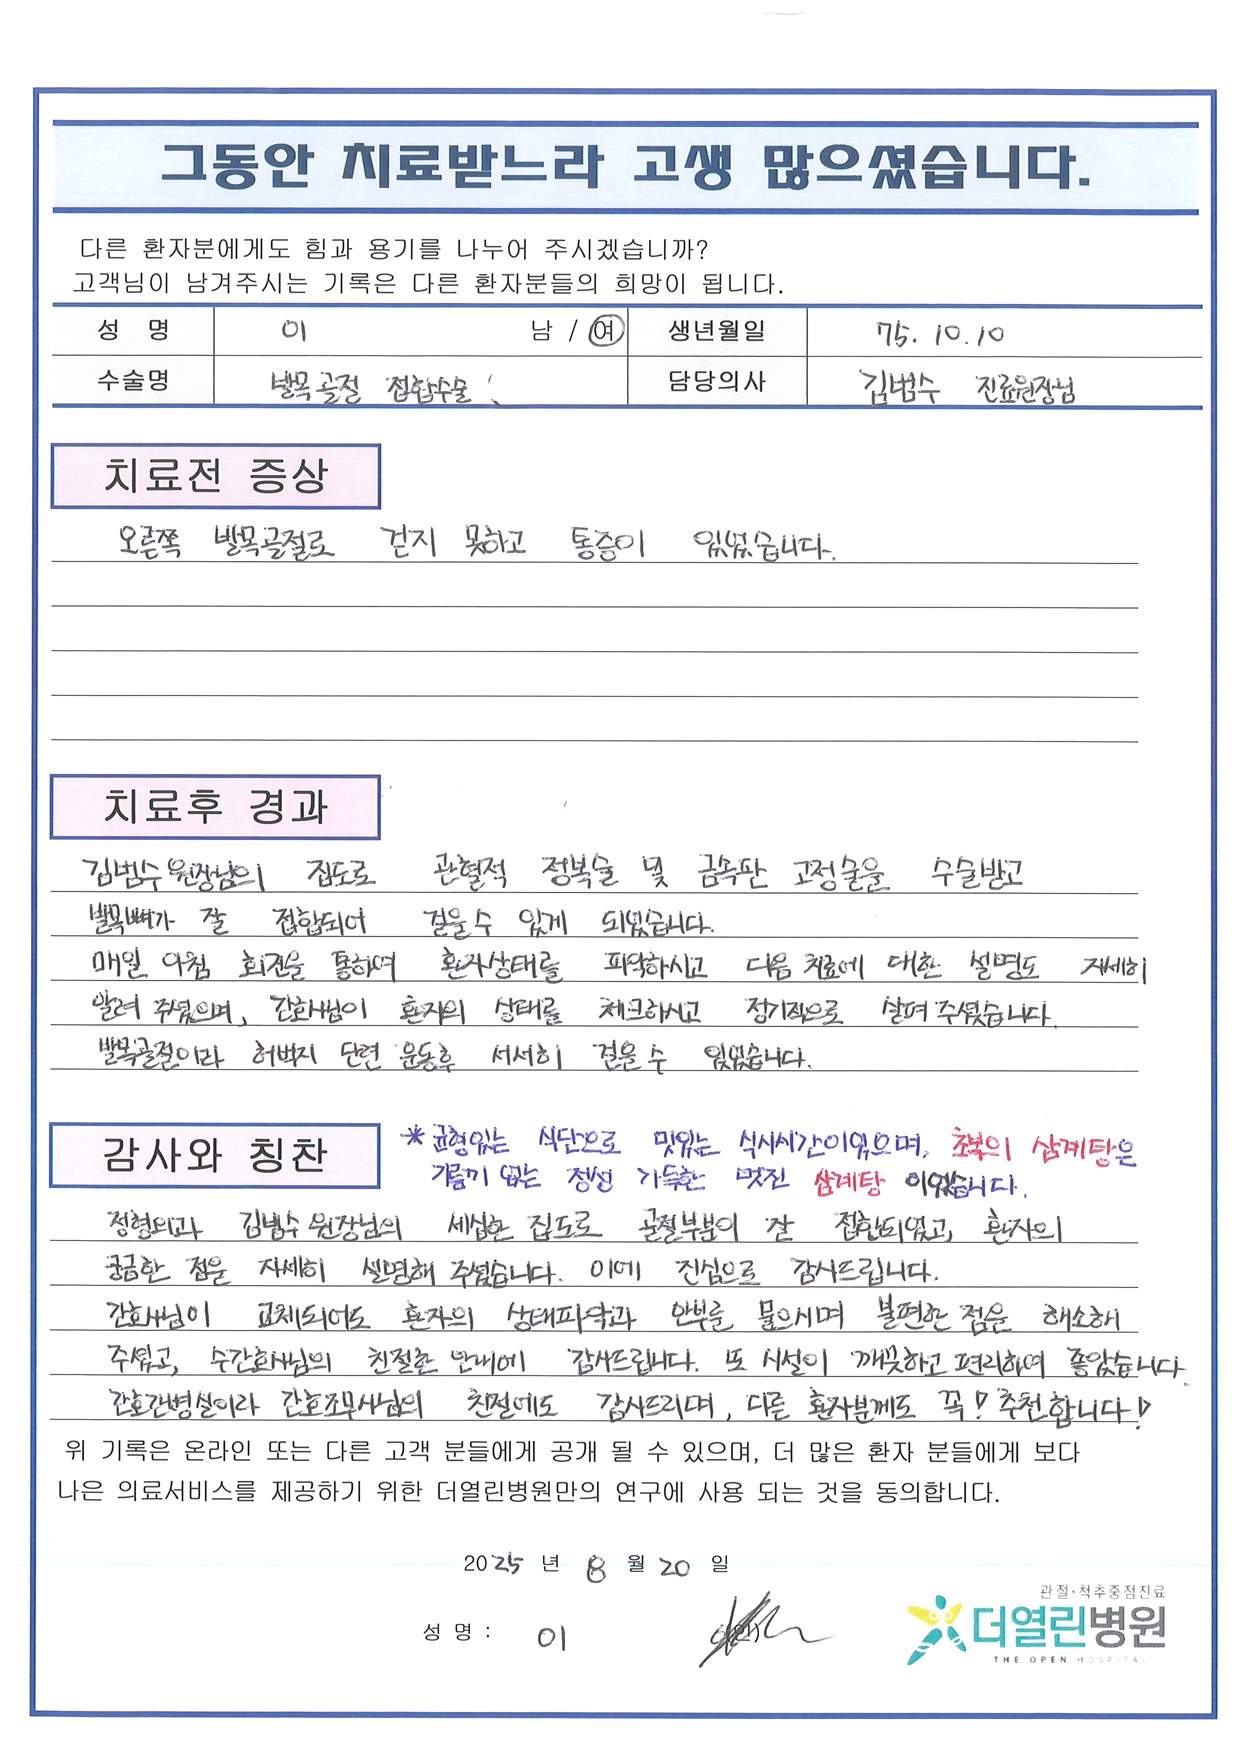 그동안 치료받느라 고생 많으셨습니다.
다른 환자분에게도 힘과 용기를 나누어 주시겠습니까?
고객님이 남겨주시는 기록은 다른 환자분들의 희망이 됩니다.
성 명 이 남 / 여 생년월일 75. 10. 10
수술명 발목골절 접합수술 담당의사 김범수 진료원장님
치료전 증상
오른쪽 발목골절로 걷지 못하고 통증이 있었습니다.
치료후 경과
김범수 원장님의 집도로 관혈적 정복술 및 금속판 고정술을 수술받고
발목뼈가 잘 접합되어 걸을 수 있게 되었습니다.
매일 아침 회진을 통하여 환자상태를 파악하시고 다음 치료에 대한 설명도 자세히
알려 주셨으며, 간호사님이 환자의 상태를 체크하시고 정기적으로 살펴 주셨습니다.
발목골절이라 허벅지 단련 운동후 서서히 걸을 수 있었습니다.
감사와 칭찬
* 균형있는 식단으로 맛있는 식사시간이었으며, 초복의 삼계탕은
기름끼 없는 정성 가득한 멋진 삼계탕 이었습니다.
정형외과 김범수 원장님의 세심한 집도로 골절부분이 잘 접합되었고, 환자의
궁금한 점을 자세히 설명해 주셨습니다. 이에 진심으로 감사드립니다.
간호사님이 교체되어도 환자의 상태파악과 안부를 물으시며 불편한 점을 해소해
주셨고, 수간호사님의 친절한 안내에 감사드립니다. 또 시설이 깨끗하고 편리하여 좋았습니다.
간호간병실이라 간호조무사님의 친절에도 감사드리며, 다른 환자분께도 꼭! 추천합니다!
위 기록은 온라인 또는 다른 고객 분들에게 공개 될 수 있으며, 더 많은 환자 분들에게 보다
나은 의료서비스를 제공하기 위한 더열린병원만의 연구에 사용 되는 것을 동의합니다.
2025 년 8 월 20 일
성 명 : 이
관절·척추중점진료
더열린병원
THE OPEN HOSPITAL